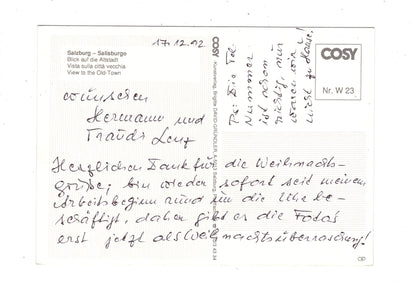 Salzburg – Salisburgo
Blick auf die Altstadt
Vista sulla città vecchia
View to the Old-Town
17.12.92
COSY
COSY
Nr. W 23
Ps: Die Tel.
Nummer
ist schon
richtig, nur
waren wir
nicht zu Hause!
wünschen
Hermann und
Traudi Lenz
Herzlichen Dank für die Weihnachts-
grüße; bin wieder sofort seit meinem
Arbeitsbeginn rund um die Uhr be-
schäftigt, daher gibt es die Fotos
erst jetzt als Weihnachtsüberraschung!
OP